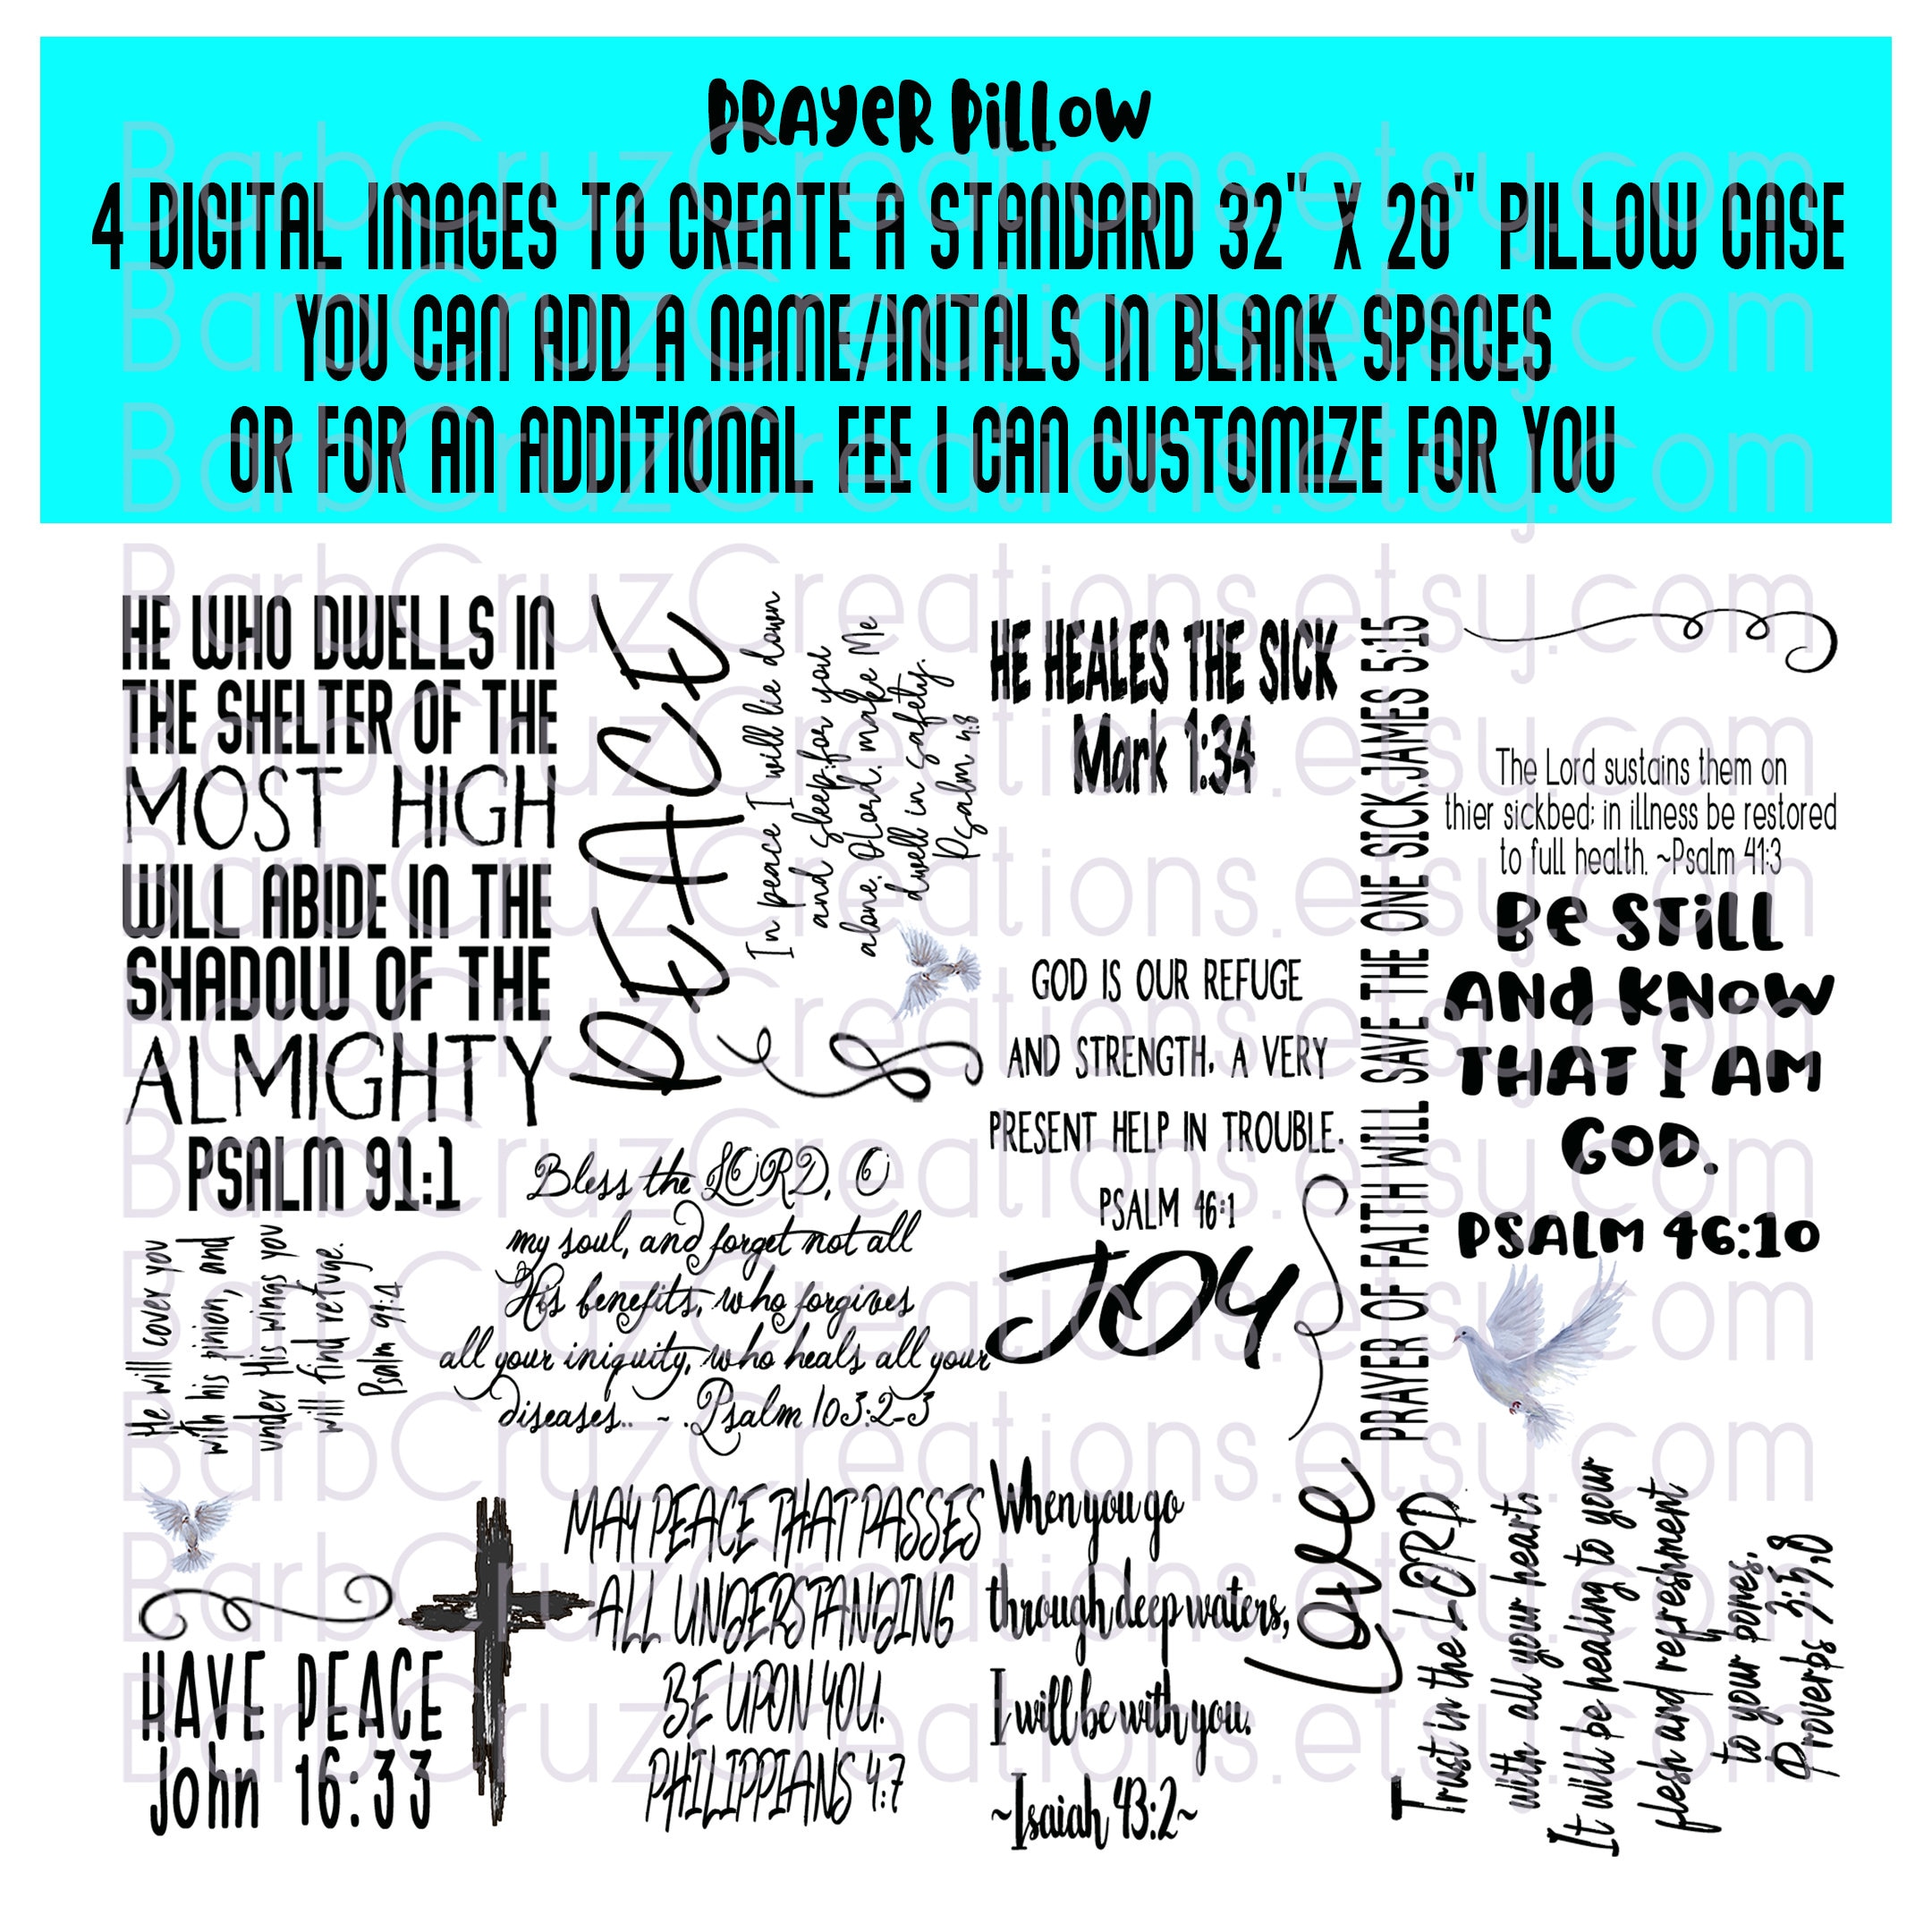 PRAYER PILLOW
4 DIGITAL IMAGES TO CREATE A STANDARD 32" X 20" PILLOW CASE
YOU CAN ADD A NAME/INITALS IN BLANK SPACES
OR FOR AN ADDITIONAL FEE I CAN CUSTOMIZE FOR YOU
HE WHO DWELLS IN
THE SHELTER OF THE
MOST HIGH
WILL ABIDE IN THE
SHADOW OF THE
ALMIGHTY
PSALM 91:1
PEACE
In peace I will lie down
and sleep, for you
alone, O Lord, make Me
dwell in safety.
Psalm 4:8
HE HEALES THE SICK
Mark 1:34
GOD IS OUR REFUGE
AND STRENGTH, A VERY
PRESENT HELP IN TROUBLE.
PSALM 46:1
PRAYER OF FAITH WILL SAVE THE ONE SICK.JAMES 5:15
The Lord sustains them on
thier sickbed; in illness be restored
to full health. ~Psalm 41:3
BE STILL
AND KNOW
THAT I AM
GOD.
PSALM 46:10
He will cover you
with his pinion, and
under His wings you
will find refuge.
Psalm 99:4
Bless the LORD, O
my soul, and forget not all
His benefits, who forgives
all your iniquity, who heals all your
diseases.. ~ .Psalm 103:2-3
JOY
HAVE PEACE
John 16:33
MAY PEACE THAT PASSES
ALL UNDERSTANDING
BE UPON YOU.
PHILIPPIANS 4:7
When you go
through deep waters,
I will be with you.
~Isaiah 43:2~
Love
Trust in the LORD
with all your heart,
It will be healing to your
flesh and refreshment
to your bones.
Proverbs 3:5,8
BarbCruzCreations.etsy.com
BarbCruzCreations.etsy.com
BarbCruzCreations.etsy.com
BarbCruzCreations.etsy.com
BarbCruzCreations.etsy.com
BarbCruzCreations.etsy.com
BarbCruzCreations.etsy.com
BarbCruzCreations.etsy.com
BarbCruzCreations.etsy.com
BarbCruzCreations.etsy.com
BarbCruzCreations.etsy.com
BarbCruzCreations.etsy.com